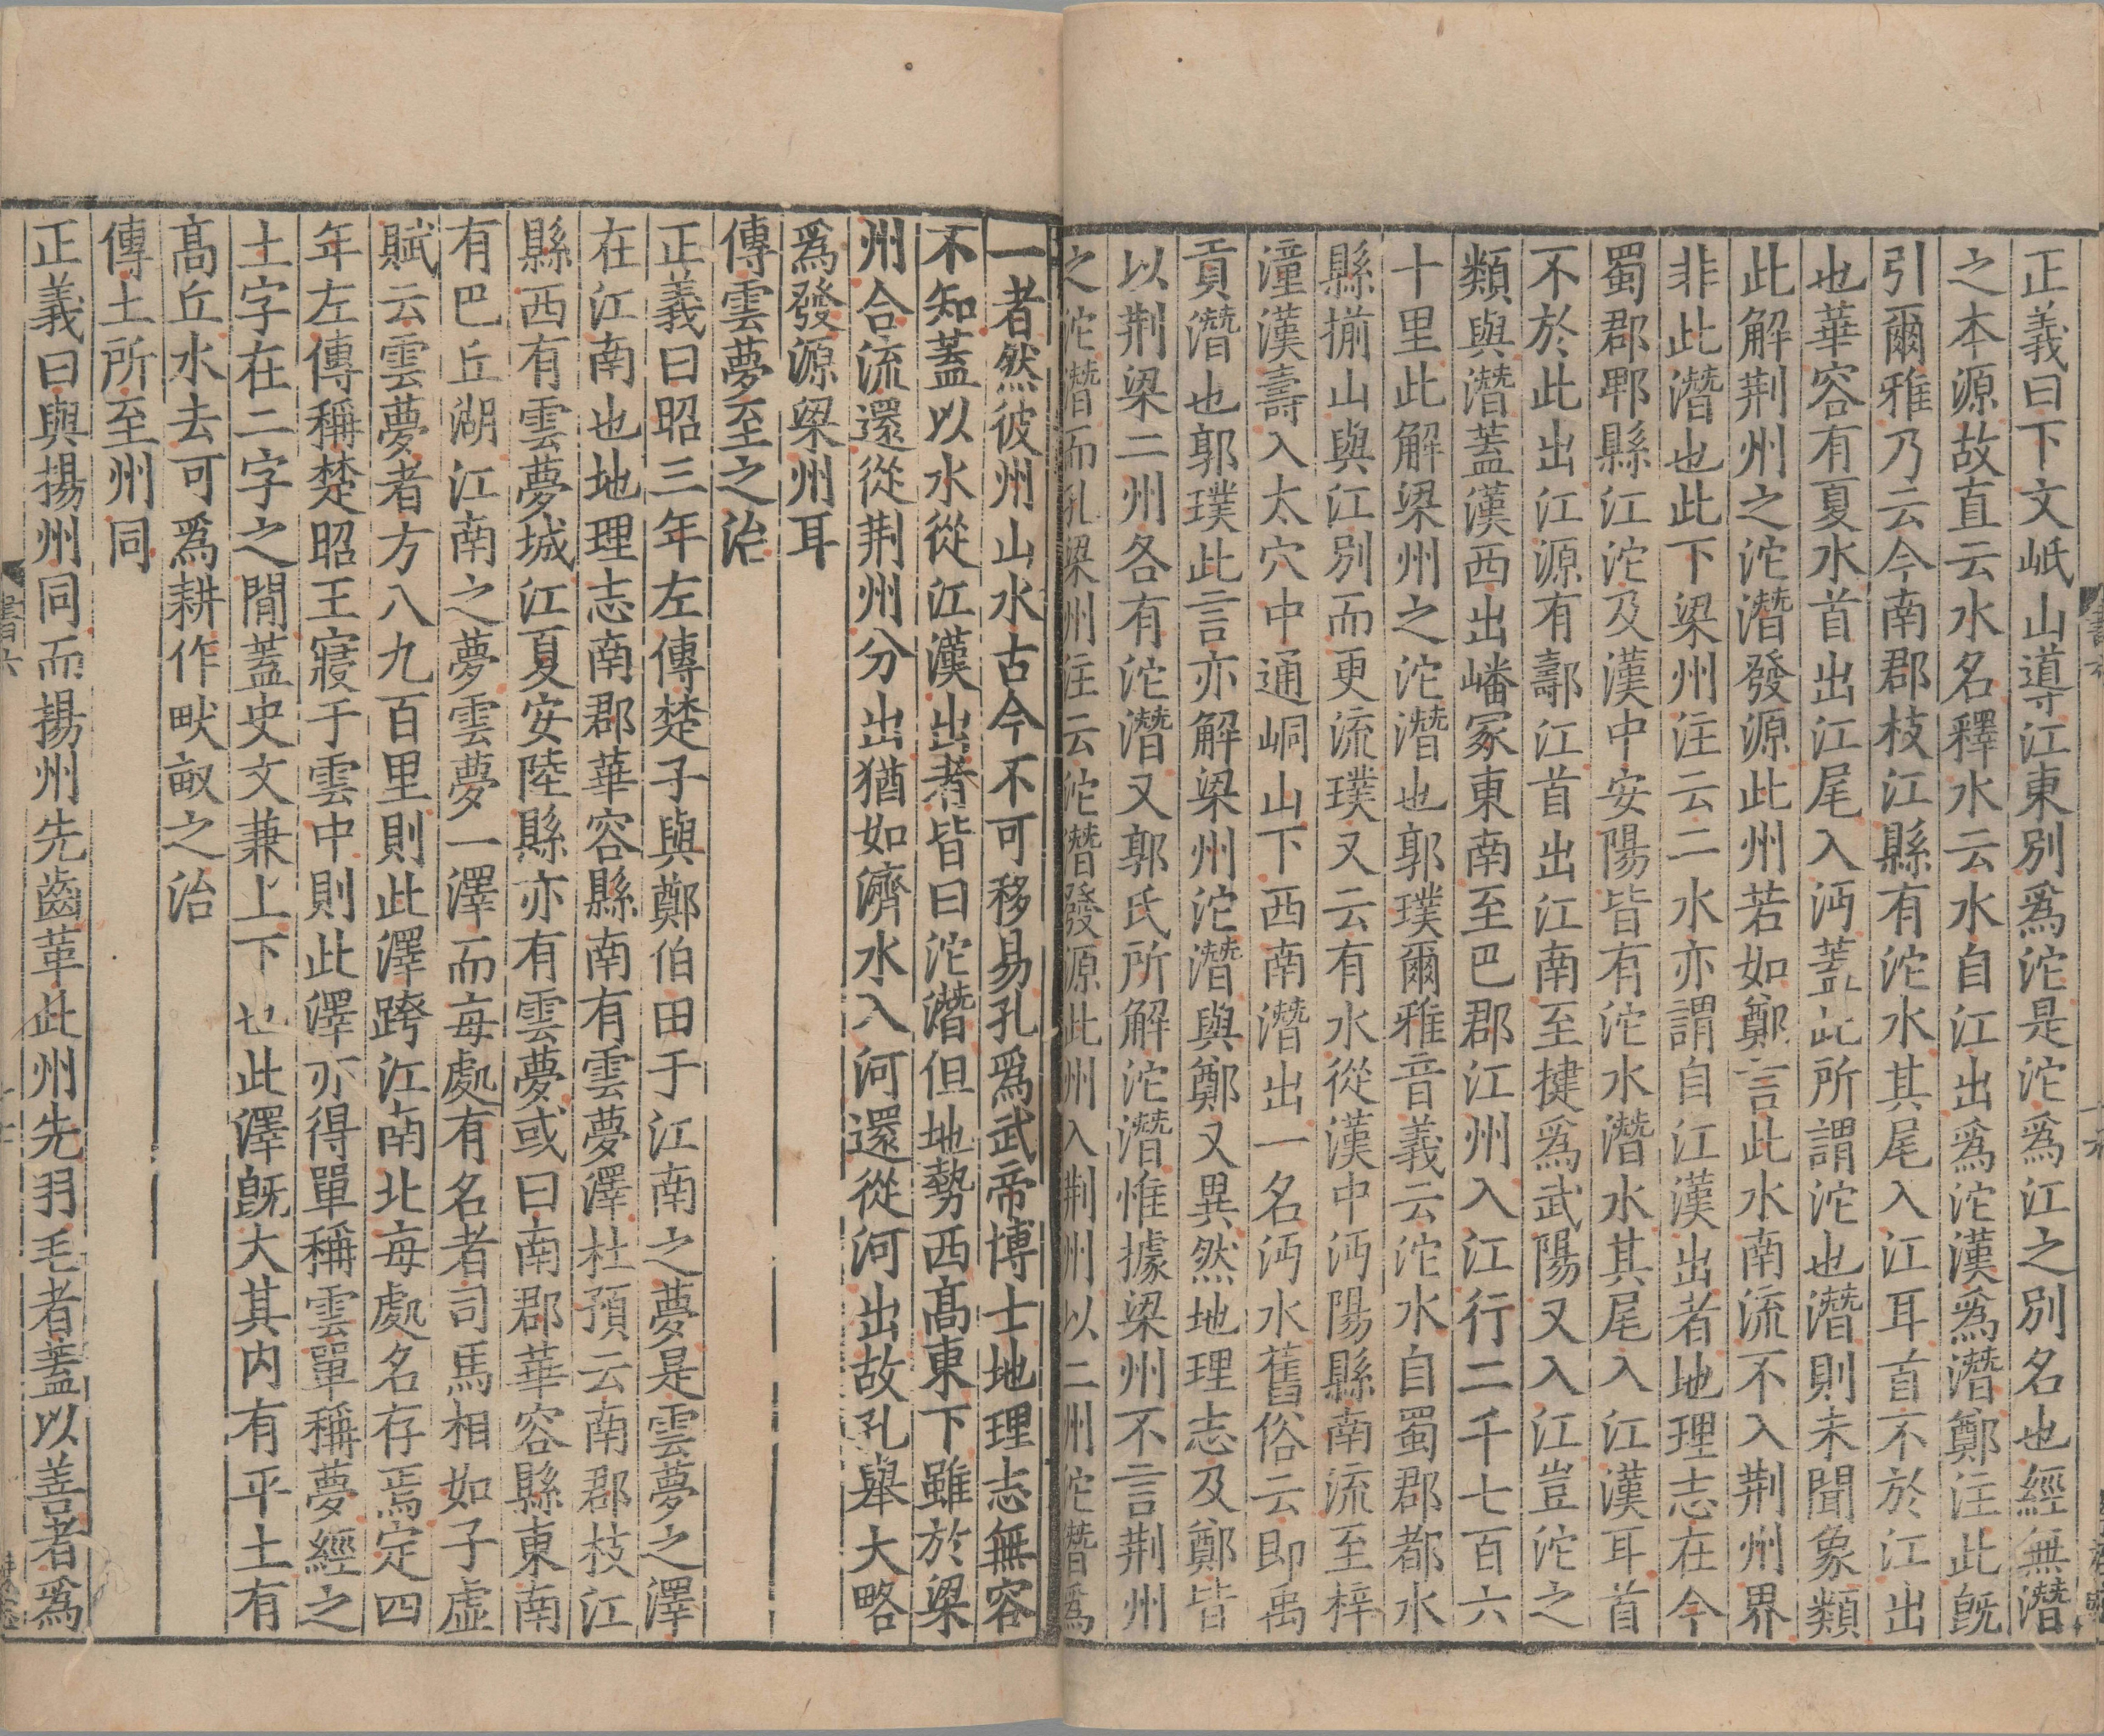 正義曰下文岷山導江東別爲沱是沱爲江之別名也經無潛
之本源故直云水名釋水云水自江出爲沱漢爲潛鄭注此旣
引爾雅乃云今南郡枝江縣有沱水其尾入江耳首不於江出
也華容有夏水首出江尾入沔蓋此所謂沱也潛則未聞象類
此解荆州之沱潛發源此州若如鄭言此水南流不入荆州界
非此潛也此下梁州注云二水亦謂自江漢出者地理志在今
蜀郡郫縣江沱及漢中安陽皆有沱水潛水其尾入江漢耳首
不於此出江源有䣝江首出江南至揵爲武陽又入江豈沱之
類與潛蓋漢西出嶓冢東南至巴郡江州入江行二千七百六
十里此解梁州之沱潛也郭璞爾雅音義云沱水自蜀郡都水
縣揃山與江別而更流璞又云有水從漢中沔陽縣南流至梓
潼漢壽入太穴中通峒山下西南潛出一名沔水舊俗云即禹
貢潛也郭璞此言亦解梁州沱潛與鄭又異然地理志及鄭皆
以荆梁二州各有沱潛又郭氏所解沱潛惟據梁州不言荆州
之沱潛而孔梁州注云沱潛發源此州入荆州以二州沱潛爲
一者然彼州山水古今不可移易孔爲武帝博士地理志無容
不知蓋以水從江漢出者皆曰沱潛但地勢西髙東下雖於梁
州合流還從荆州分出猶如濟水入河還從河出故孔舉大略
爲發源梁州耳
傳雲夢至之治
正義曰昭三年左傳楚子與鄭伯田于江南之夢是雲夢之澤
在江南也地理志南郡華容縣南有雲夢澤杜預云南郡枝江
縣西有雲夢城江夏安陸縣亦有雲夢或曰南郡華容縣東南
有巴丘湖江南之夢雲夢一澤而每處有名者司馬相如子虛
賦云雲夢者方八九百里則此澤跨江南北每處名存焉定四
年左傳稱楚昭王寢于雲中則此澤亦得單稱雲單稱夢經之
土字在二字之閒蓋史文兼上下也此澤旣大其内有平土有
髙丘水去可爲耕作畎畝之治
傳土所至州同
正義曰與揚州同而揚州先齒革此州先羽毛者蓋以善者爲